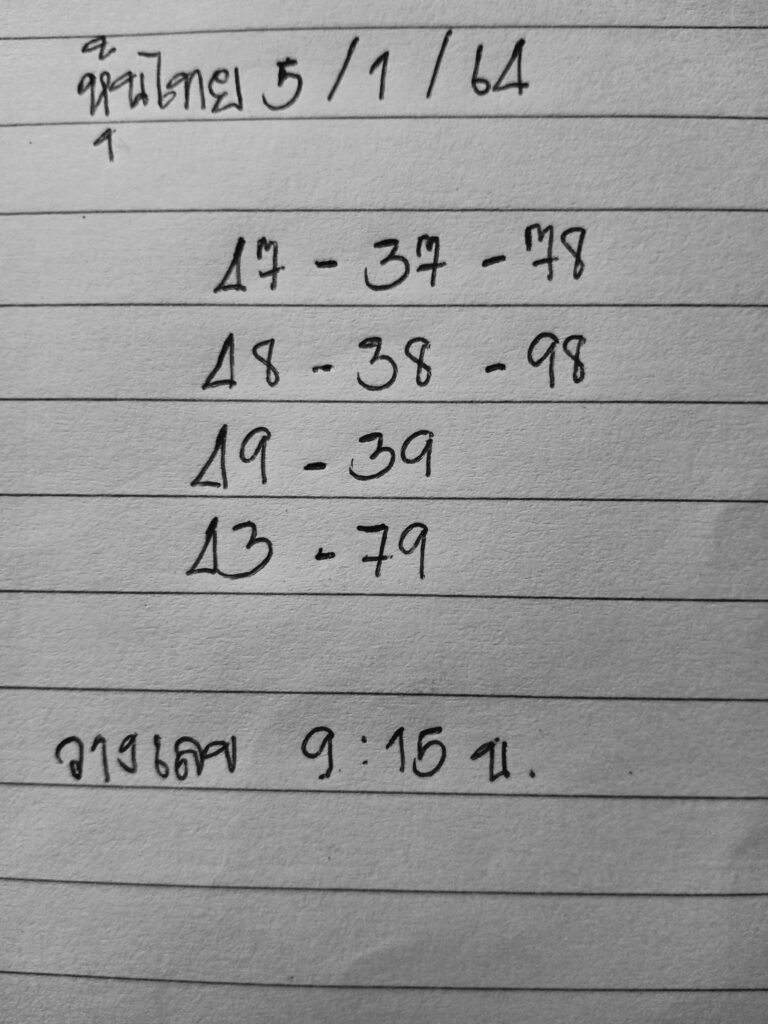 หุ้นไทย 5/1/64
47 - 37 - 78
48 - 38 - 98
49 - 39
43 - 79
วางเลข 9:15 น.